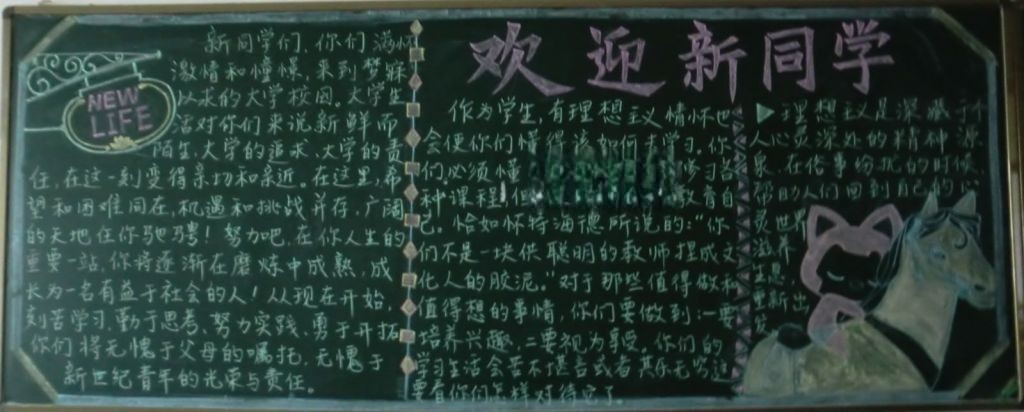 欢迎新同学
NEW
LIFE
新同学们,你们满怀
激情和憧憬,来到梦寐
以求的大学校园。大学生
活对你们来说新鲜而
陌生,大学的追求、大学的责
任,在这一刻变得亲切和亲近。在这里,希
望和困难同在,机遇和挑战并存,广阔
的天地任你驰骋!努力吧,在你人生的
重要一站,你将逐渐在磨炼中成熟,成
长为一名有益于社会的人!从现在开始,
刻苦学习,勤于思考,努力实践,勇于开拓
你们将无愧于父母的嘱托,无愧于
新世纪青年的光荣与责任。
作为学生,有理想主义情怀也
会使你们懂得该如何去学习。你
们必须懂 修习各
种课程,但 教育自
己。恰如怀特海德所说的:“你
们不是一块供聪明的教师捏成文
化人的胶泥。”对于那些值得做和
值得想的事情,你们要做到:一要
培养兴趣,二要视为享受。你们的
学习生活会苦不堪言或者其乐无穷这
要看你们怎样对待它了。
理想主义是深藏于
人心灵深处的精神源
泉,在俗事纷扰的时候,
帮助人们回到自己的心
灵世界
滋养
生息,
重新出
发